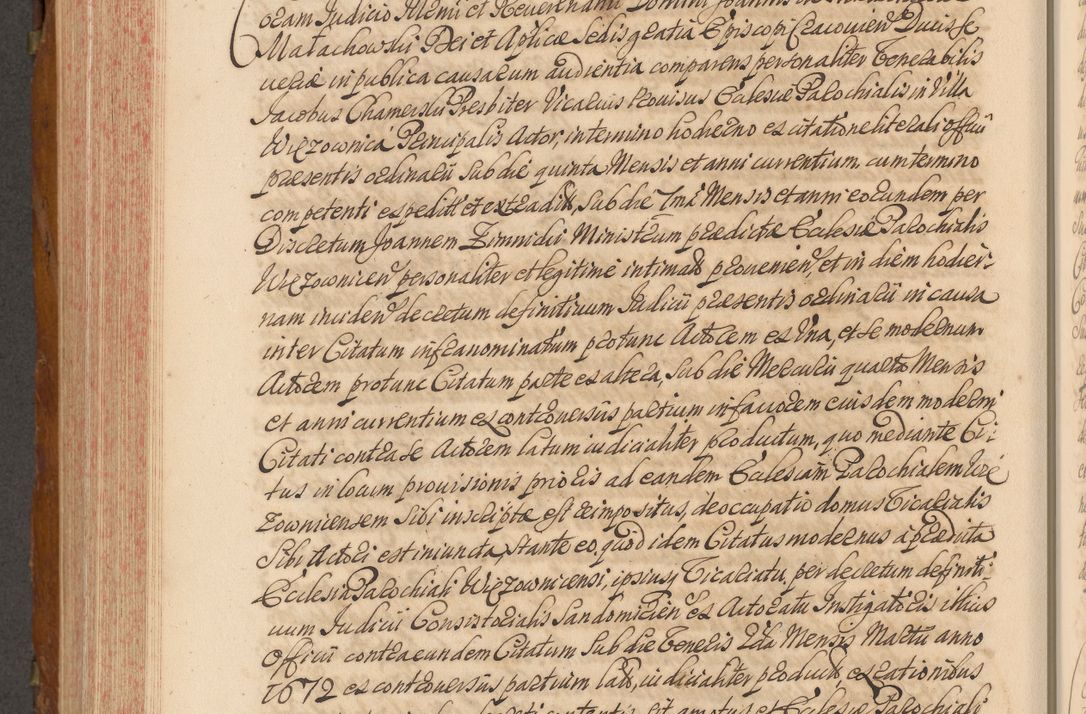 coram Judicio Illcmi et Reverendmi Domini Joannis
Małachowski Dei et Aplicae Sedis gratia Episcopi Cracovien Ducis Se
veriae in publica causarum audientia comparens personaliter Venerabilis
Jacobus Chamerski Presbiter Vicarius Provisus Ecclesiae Parochialis in Villa
Principalis Actor, in termino hodierno ex citatione literali officii
praesentis ordinarii sub die quinta Mensis et anni currentium cum termino
competenti expedit et extradit, sub die 7ma Mensis et anni eorundem per
Discretum Joannem Ministrum praedictae Ecclesiae Parochialis
Wrzownicen personaliter et legitime intimato provenien, et in diem hodier-
nam inciden decretum definitivum Judicii praesentis ordinarii in causa
inter Citatum infranominatum protunc Actorem ex Una, et se modernum
Actorem protunc Citatum parte ex altera, sub die Mercurii quarto Mensis
et anni currentium ex controversiis partium in favorem eiusdem moderni
Citati contra se Actorem latum iudicialiter productum, quo mediante Ci-
tus in locum provisionis prioris ad eandem Ecclesiam Parochialem Wrze
zowniensem sibi inscriptae est reimpositus, de occupatio domus Vicarialis
sibi Actori est iniuncta, stante eo, quod idem Citatus modernus a praedicta
Ecclesia Parochiali Wrzzownicensi, ipsiusq Vicariatu, per decretum definiti-
vum Judicii Consistorialis Sandomirien ex Actoratu Instigatoris illius
Officii contra eundem Citatum sub die Veneris Mensis Martii anno
1672 ex controversiis partium lato, iudicialiter producto ex rationibus
et Ecclesiae Parochiali